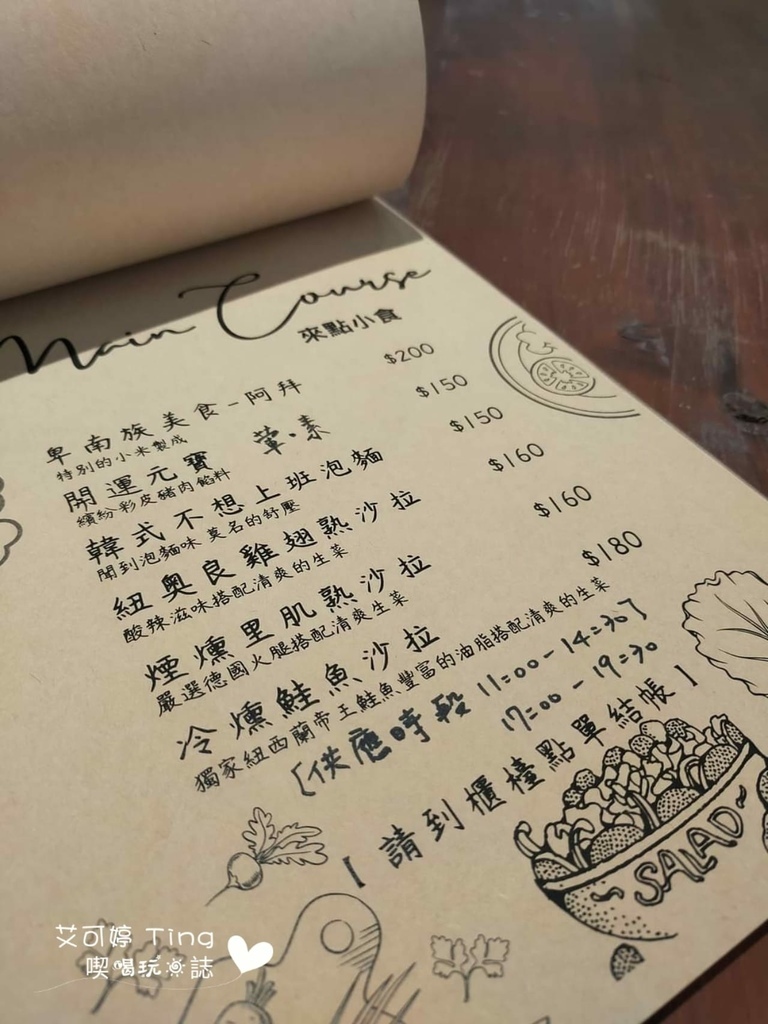 Main Course
來點小食
卑南族美食-阿拜 $200
特別的小米製成
開運元寶 葷·素 $150
繽紛彩皮豬肉餡料
韓式不想上班泡麵 $150
聞到泡麵味 莫名的舒壓
紐奧良雞翅熟沙拉 $160
酸辣滋味搭配清爽的生菜
煙燻里肌熟沙拉 $160
嚴選德國火腿搭配清爽生菜
冷燻鮭魚沙拉 $180
獨家紐西蘭帝王鮭魚豐富的油脂搭配清爽的生菜
[供應時段 11:00-14:30]
17:00-19:30
【請到櫃檯點單結帳】
SALAD
艾可婷 Ting
喫喝玩樂誌